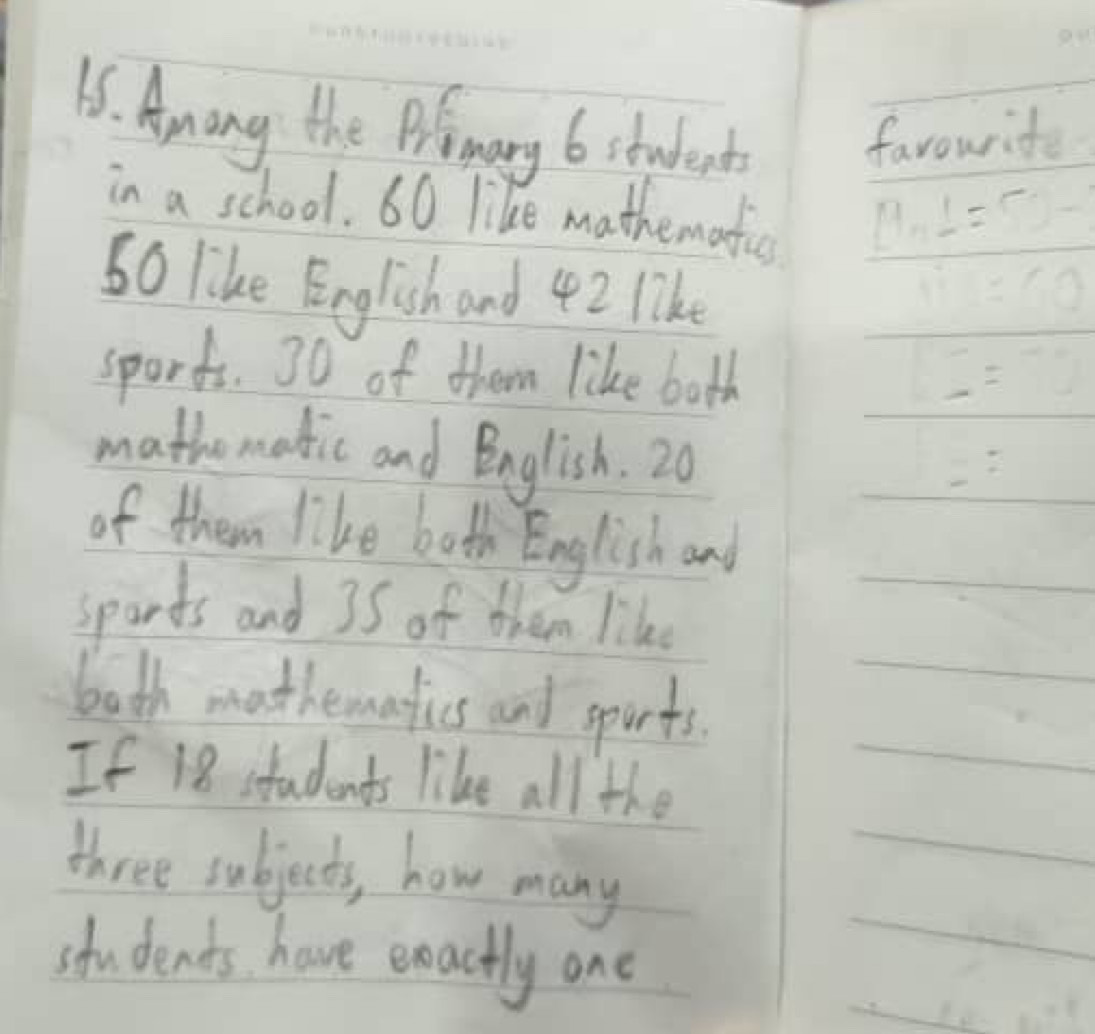 15. Among the Primary 6 students
in a school. 60 like mathematics.
50 like English and 42 like
sports. 30 of them like both
mathematic and English. 20
of them like both English and
sports and 35 of them like
both mathematics and sports.
If 18 students like all the
three subjects, how many
students have exactly one
favourite